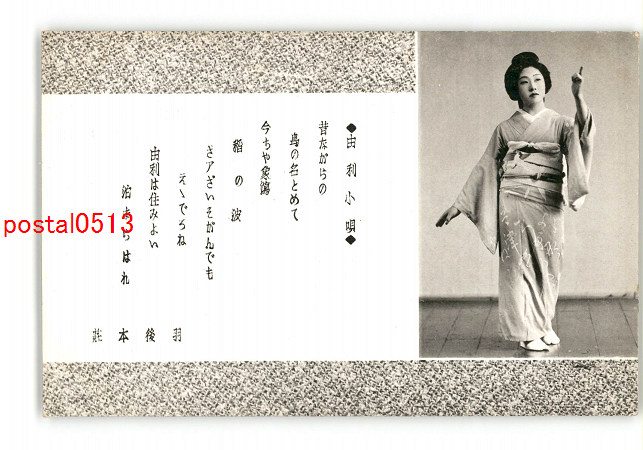 ◆由利小唄◆
昔ながらの
島の名とめて
今ぢや象潟
稲の波
さアざいそがんでも
えゝでろね
由利は住みよい
はれ
羽後本荘
postal0513